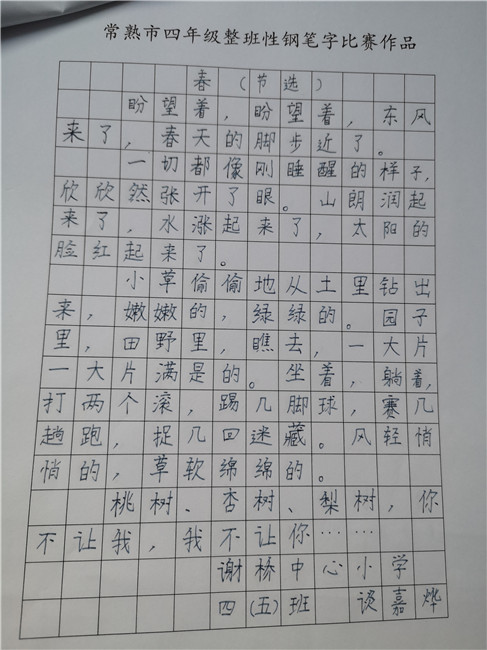 常熟市四年级整班性钢笔字比赛作品
春（节选）
盼望着，盼望着，东风
来了，春天的脚步近了。
一切都像刚睡醒的样子，
欣欣然张开了眼。山朗润起
来了，水涨起来了，太阳的
脸红起来了。
小草偷偷地从土里钻出
来，嫩嫩的，绿绿的。园子
里，田野里，瞧去，一大片
一大片满是的。坐着，躺着，
打两个滚，踢几脚球，赛几
趟跑，捉几回迷藏。风轻悄
悄的，草软绵绵的。
桃树、杏树、梨树，你
不让我，我不让你……
谢桥中心小学
四（五）班 谈嘉烨